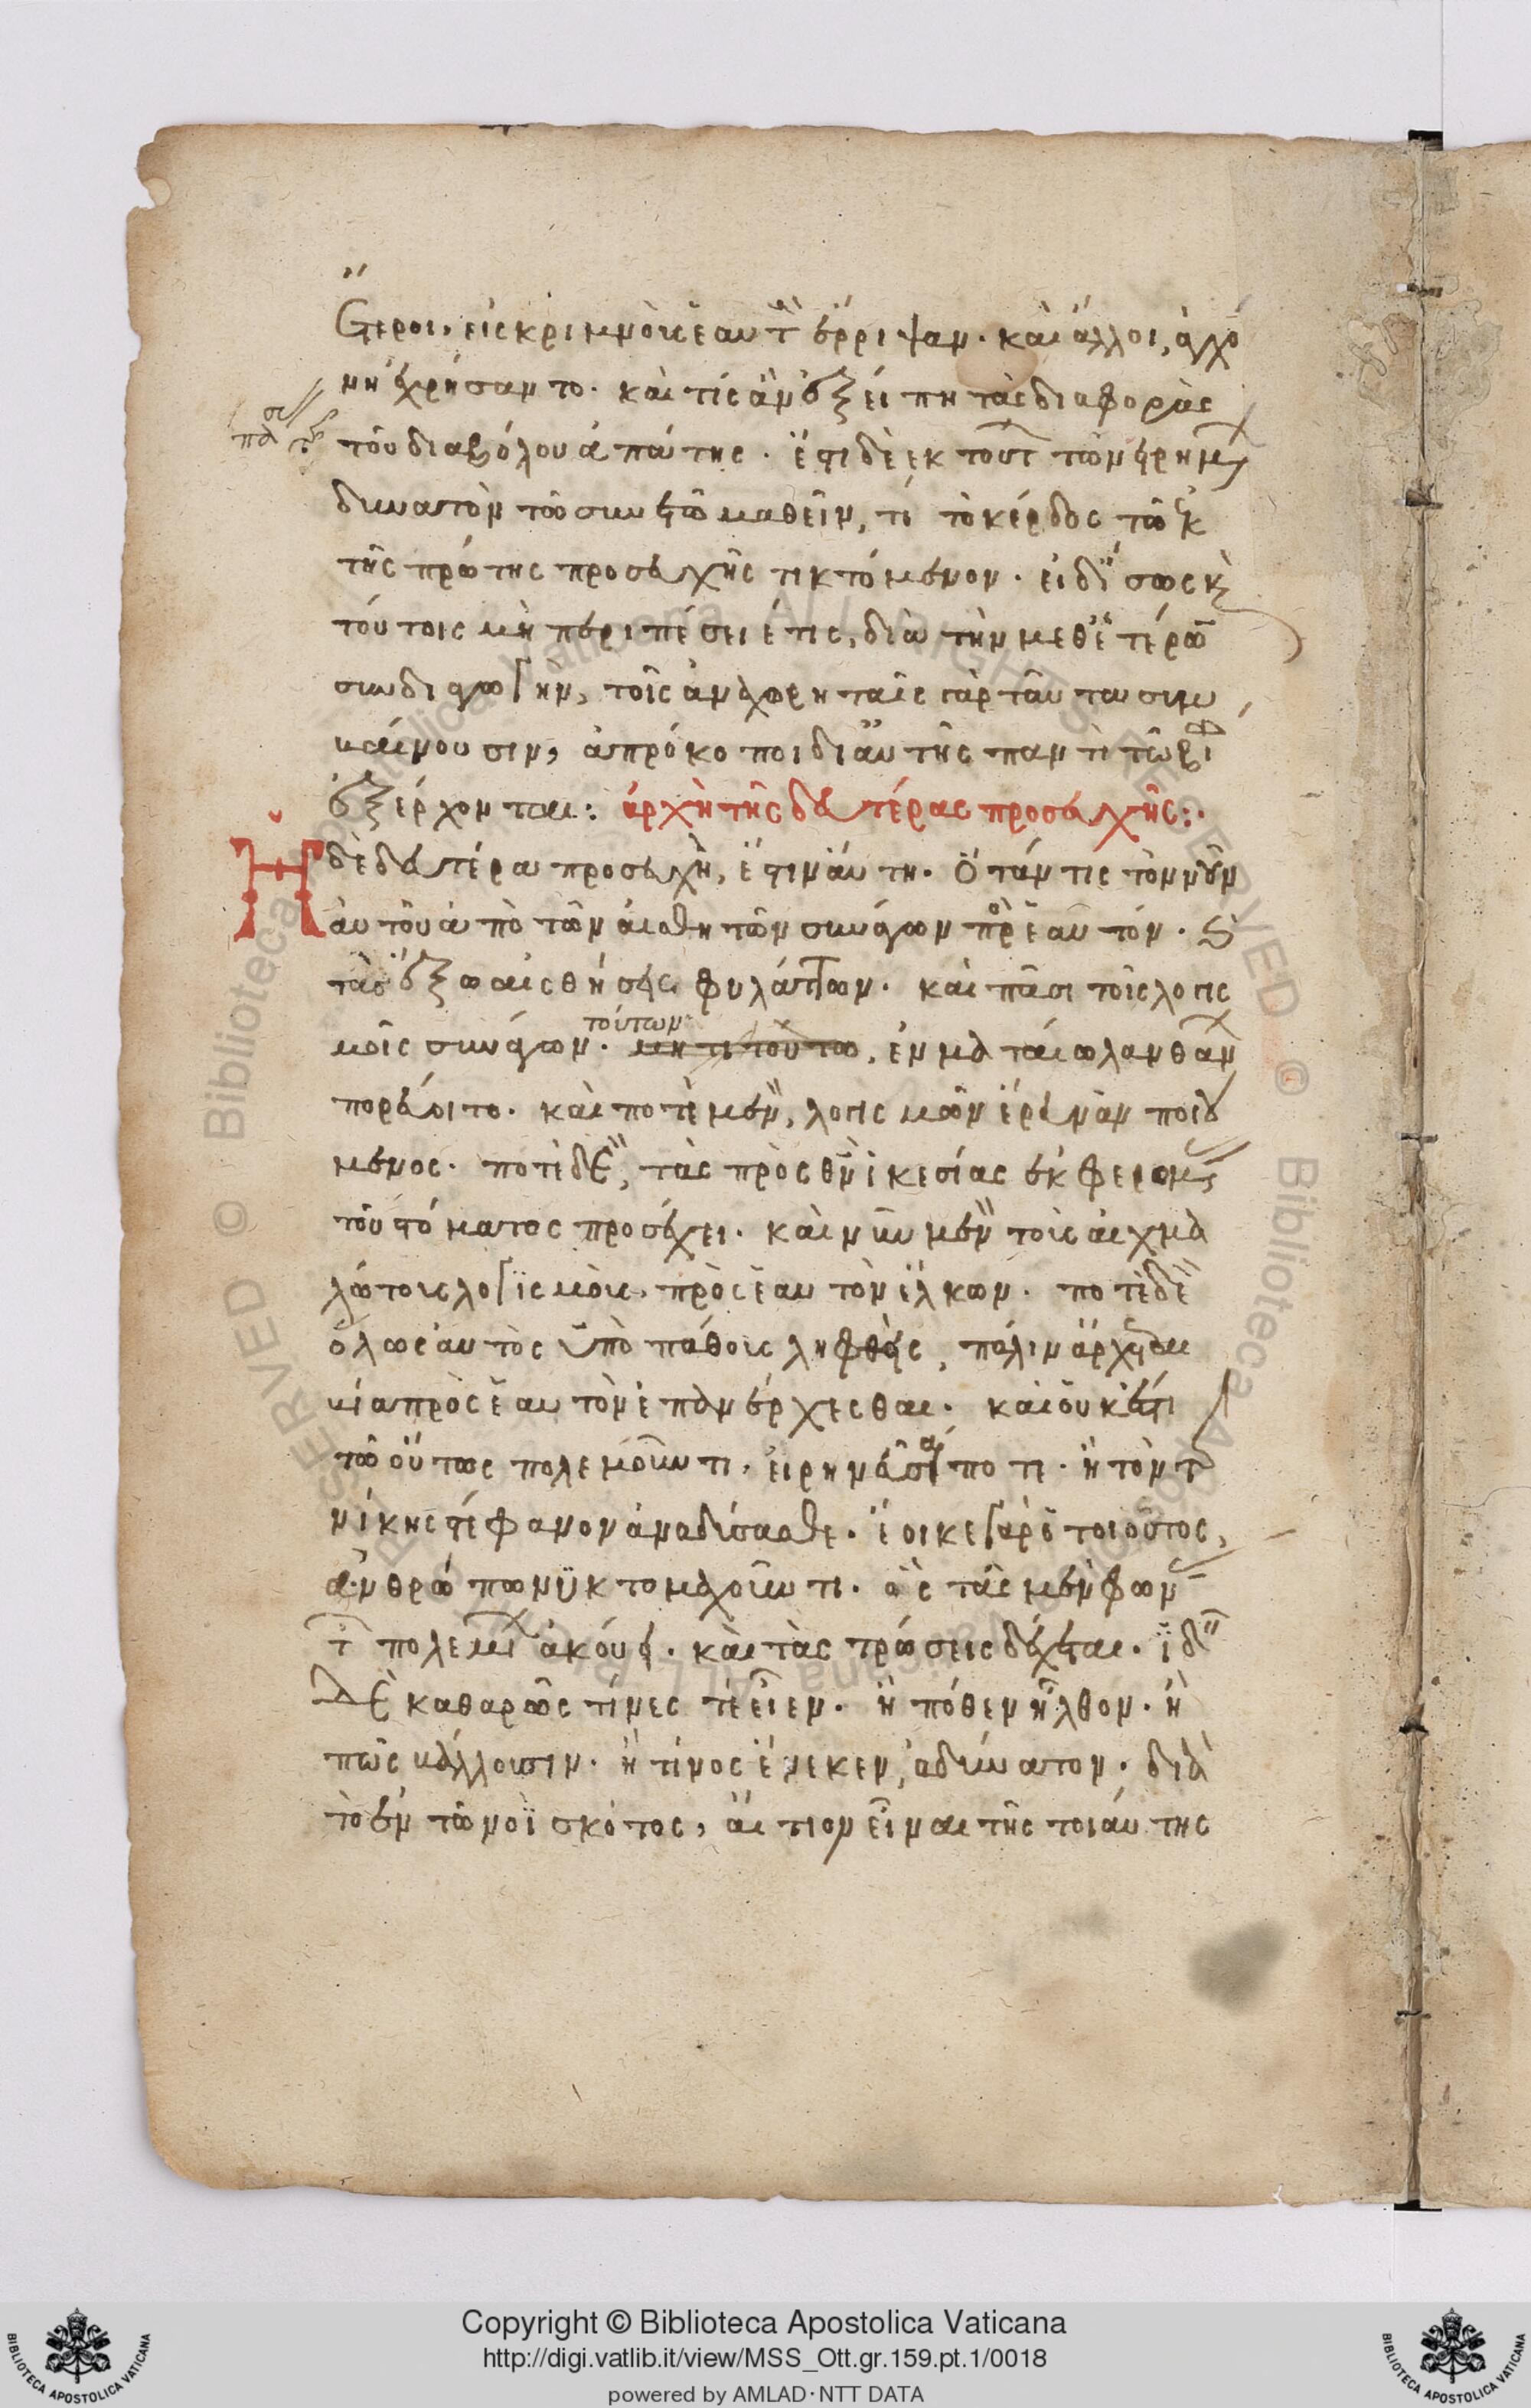 Ἕτεροι, εἰς κριμνοὺς ἑαυτ(οὺς) ἔρριψαν. καὶ ἄλλοι, ἀγχό
νη ἐχρήσαντο. καὶ τίς ἂν ἐξείπη τὰς διαφορὰς
τοῦ διαβόλου ἀπάτης. ἔστι δὲ ἐκ τούτ τῶν εἰρημ
δυνατὸν τῶ συνετῶ μαθεῖν, τί τὸ κέρδος τῶ ἐκ
τῆς πρώτης προσευχῆς τικτόμενον. εἰ δ' ἴσως κ
τούτοις μὴ περιπέσει ἔτις, διὰ τὴν μεθ' ἑτέρω
συνδιαγωγὴν, τοῖς ἀναχωρηταῖς γὰρ ταῦτα συμ
βαίνουσιν, ἀπρόκοποι δι' αὐτῆς παντὶ τῶ βί
ἐξέρχονται: ἀρχὴ τῆς δευτέρας προσευχῆς:
Ἡ δὲ δευτέρα προσευχὴ, ἔστιν αὕτη. ὅτάν τις τὸν νοῦν
αὐτοῦ ἀπὸ τῶν αἰσθητῶν συνάγων πρὸ ἑαυτόν. κ
τὰς ἔξω αἰσθήσεις φυλάττων. καὶ πᾶσι τοῖς λογισ
μοῖς συνάγων. τούτων μη τι τούτω, ἐν ματαίω λανθαν
πορεύοιτο. καὶ ποτὲ μὲν, λογισμῶν ἔρευναν ποιού
μενος. ποτὲ δὲ, τὰς πρὸς θν ἱκεσίας ἐκφερομ
τοῦ στόματος προσέχει. καὶ νῦν μὲν τοὺς αἰχμα
λώτους λογϊσμοὺς, πρὸς ἑαυτὸν ἕλκων. ποτὲ δὲ
ὅλως αὐτὸς ὑπὸ πάθους ληφθεὶς, πάλιν ἄρχεται
βία πρὸς ἑαυτὸν ἐπανέρχεσθαι. καὶ οὐκ ἔστι
τῶ οὕτως πολεμοῦντι, εἰρηνεῦσαί ποτι. ἢ τὸν τ
νίκης στέφανον ἀναδύσασθε. ἔοικε γὰρ ὁ τοιοῦτος,
ἀνθρώπω νϋκτομαχοῦντι. ὃς τὰς μὲν φων
τ πολεμί ἀκούει. καὶ τὰς τρώσεις δέχεται. ἰδ
δὲ καθαρῶς τίνες τὲ εἶεν. ἢ πόθεν ἦλθον. ἢ
πῶς βάλλουσιν. ἢ τίνος ἕνεκεν, ἀδύνατον. διὰ
τὸ ἐν τῶ νοῒ σκότος, αἴτιον εἶναι τῆς τοιαύτης
Copyright © Biblioteca Apostolica Vaticana
http://digi.vatlib.it/view/MSS_Ott.gr.159.pt.1/0018
powered by AMLAD·NTT DATA